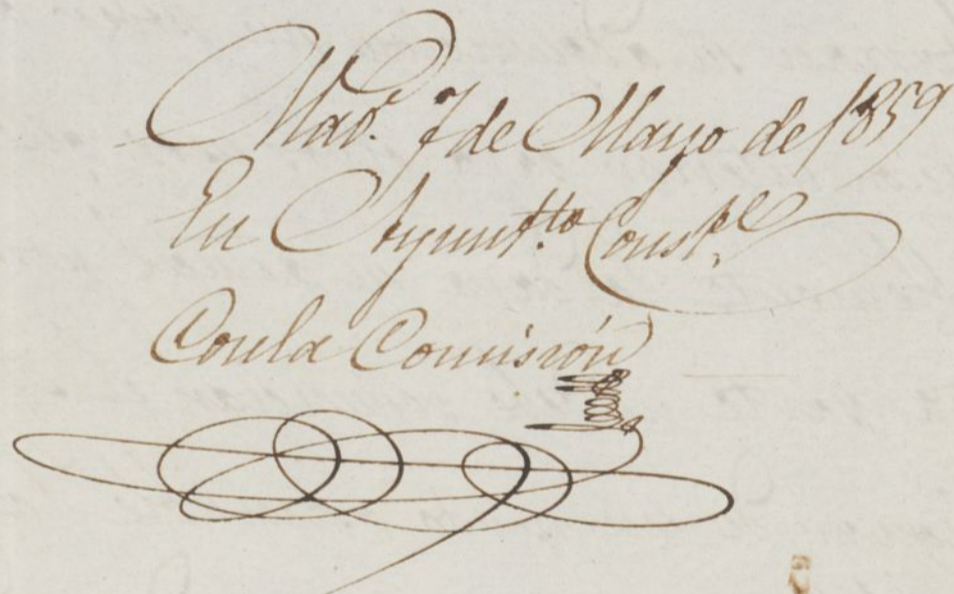 Mad.d 7 de Mayo de 1859
En Ayunt.to Const.l
Con la Comisión